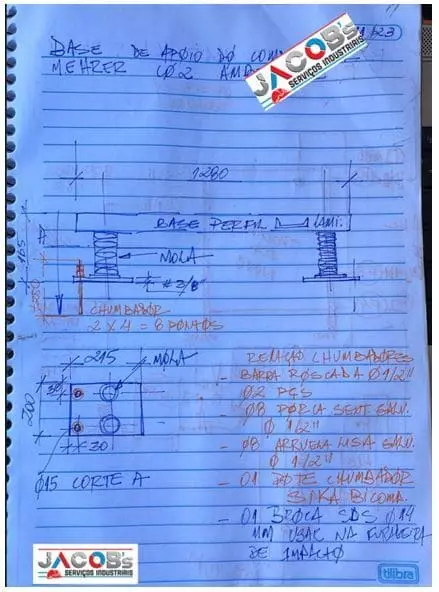 1/23
BASE DE APOIO DO COM
MEHRER C/ 02 AM
JACOB's
SERVIÇOS INDUSTRIAIS
1280
BASE PERFIL LAMI.
MOLA
165
# 3/8"
CHUMBADOR
2 X 4 = 8 PONTOS
215
MOLA
30
200
30
Ø15 CORTE A
RELAÇÃO CHUMBADORES
- BARRA ROSCADA Ø 1/2"
02 PÇS
- 08 PORCA SEXT. GALV.
Ø 1/2"
- 08 ARRUELA LISA GALV.
Ø 1/2"
- 01 POTE CHUMBADOR
SIKA BICOMA.
- 01 BROCA SDS Ø 14
MM USAR NA FURADEIRA
DE IMPACTO
JACOB's
SERVIÇOS INDUSTRIAIS
tilibra